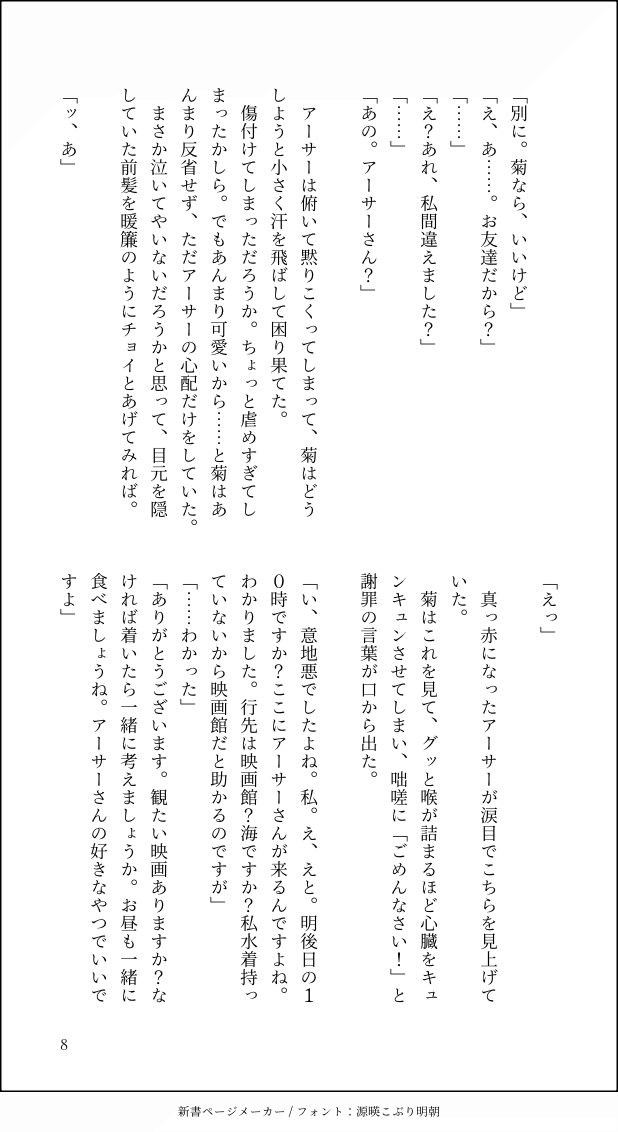 「別に。菊なら、いいけど」
「え、あ……。お友達だから？」
「……」
「え？あれ、私間違えました？」
「……」
「あの。アーサーさん？」
　アーサーは俯いて黙りこくってしまって、菊はどう
しようと小さく汗を飛ばして困り果てた。
　傷付けてしまっただろうか。ちょっと虐めすぎてし
まったかしら。でもあんまり可愛いから……と菊はあ
んまり反省せず、ただアーサーの心配だけをしていた。
　まさか泣いてやいないだろうかと思って、目元を隠
していた前髪を暖簾のようにチョイとあげてみれば。
「ッ、あ」
「えっ」
　真っ赤になったアーサーが涙目でこちらを見上げて
いた。
　菊はこれを見て、グッと喉が詰まるほど心臓をキュ
ンキュンさせてしまい、咄嗟に「ごめんなさい！」と
謝罪の言葉が口から出た。
「い、意地悪でしたよね。私。え、えと。明後日の１
０時ですか？ここにアーサーさんが来るんですよね。
わかりました。行先は映画館？海ですか？私水着持っ
ていないから映画館だと助かるのですが」
「……わかった」
「ありがとうございます。観たい映画ありますか？な
ければ着いたら一緒に考えましょうか。お昼も一緒に
食べましょうね。アーサーさんの好きなやつでいいで
すよ」
8
新書ページメーカー / フォント：源暎こぶり明朝